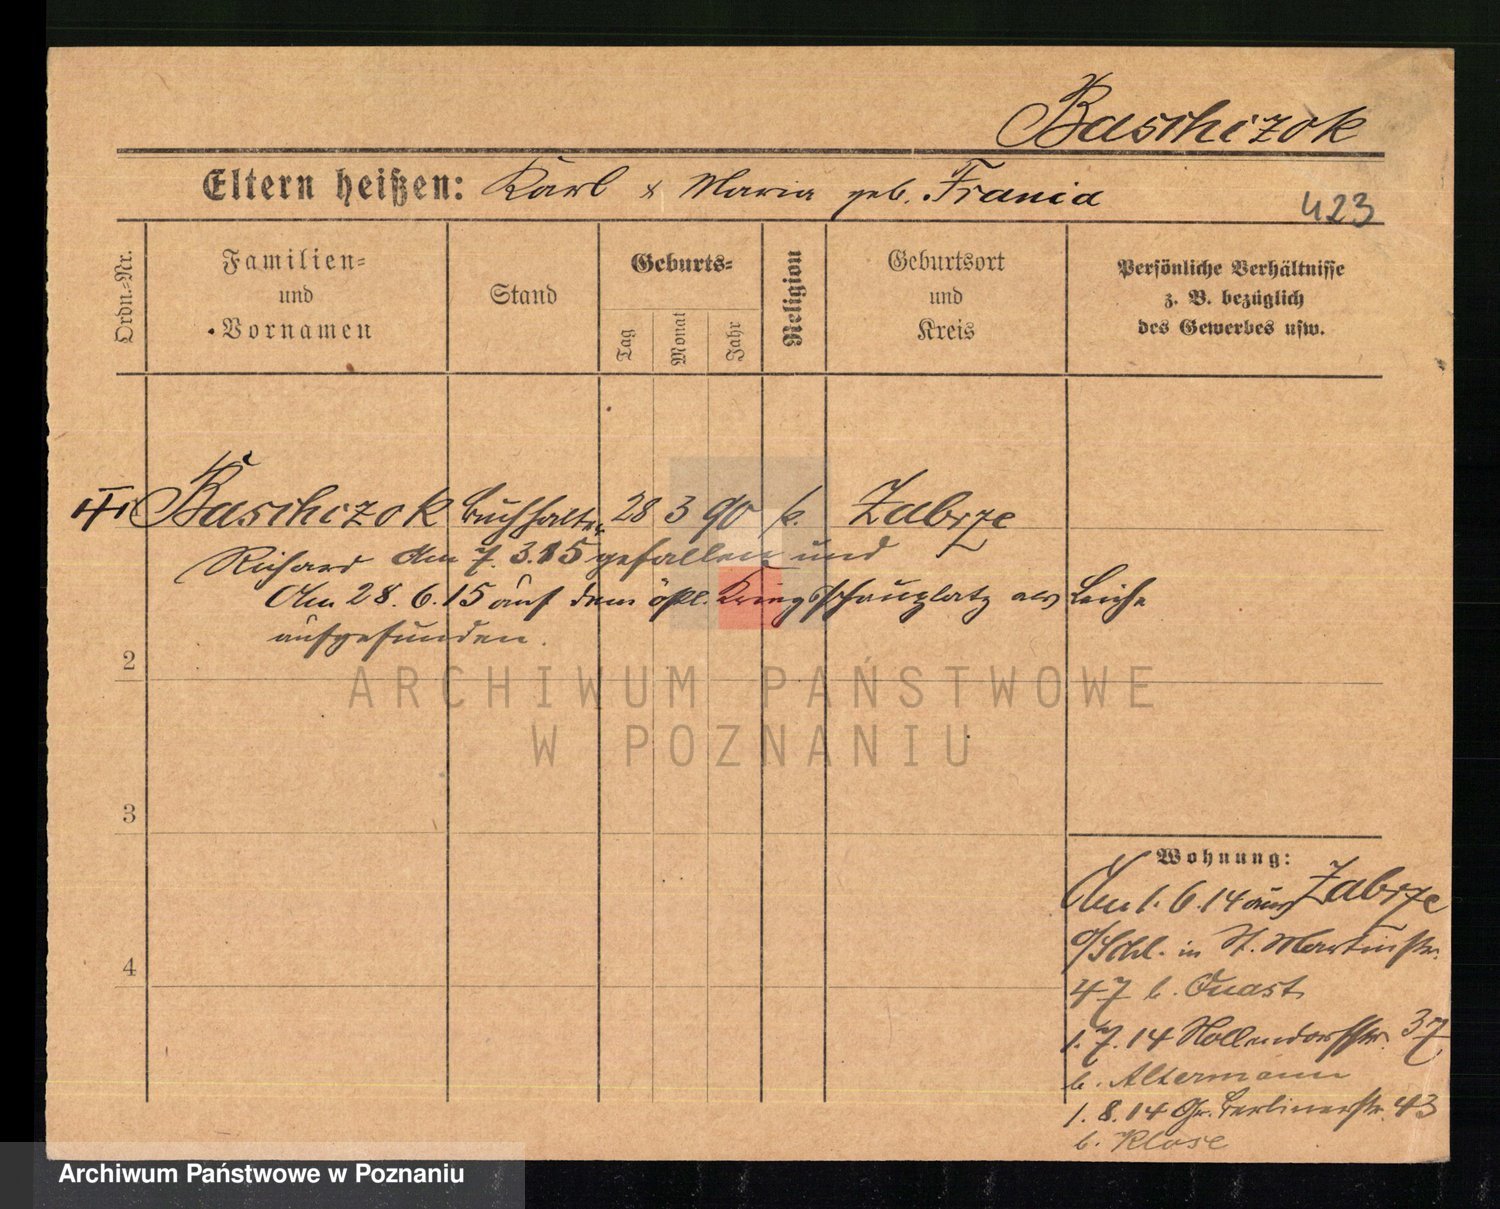 Baschizok
Eltern heißen: Karl & Maria geb. Frania
423
Ordn.=Nr.
Familien=
und
Vornamen
Stand
Geburts=
Tag
Monat
Jahr
Religion
Geburtsort
und
Kreis
Persönliche Verhältnisse
z. B. bezüglich
des Gewerbes usw.
Baschizok Buchhalter 28 3 90 k. Zabrze
Richard Am 7. 3.15 gefallen und
Am 28. 6.15 auf dem östl. Kriegsschauplatz als Leiche
aufgefunden.
2
ARCHIWUM PAŃSTWOWE
W POZNANIU
3
4
Wohnung:
Am 1. 6.14 aus Zabrze
o/Schl. in St. Martinstr.
47 b. Quast
1. 7. 14 Nollendorfstr. 37
b. Altermann
1. 8. 14 Gr. Berlinerstr. 43
b. Klose
Archiwum Państwowe w Poznaniu